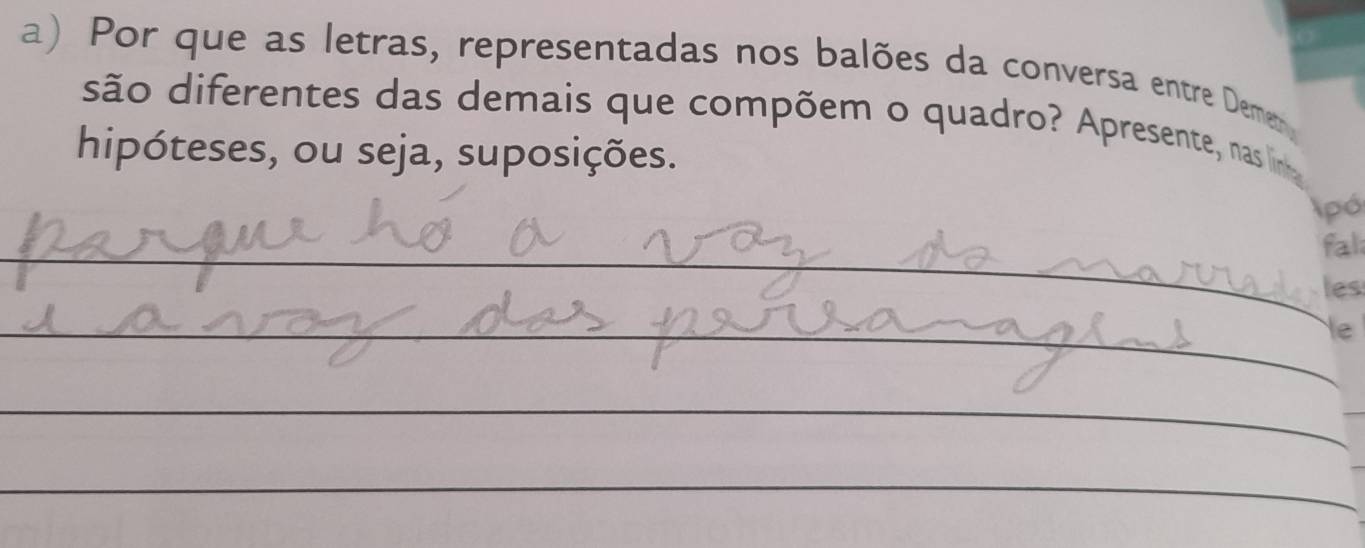 a) Por que as letras, representadas nos balões da conversa entre
são diferentes das demais que compõem o quadro? Apresente, nas
hipóteses, ou seja, suposições.
porque há a voz do
e a voz dos personagens